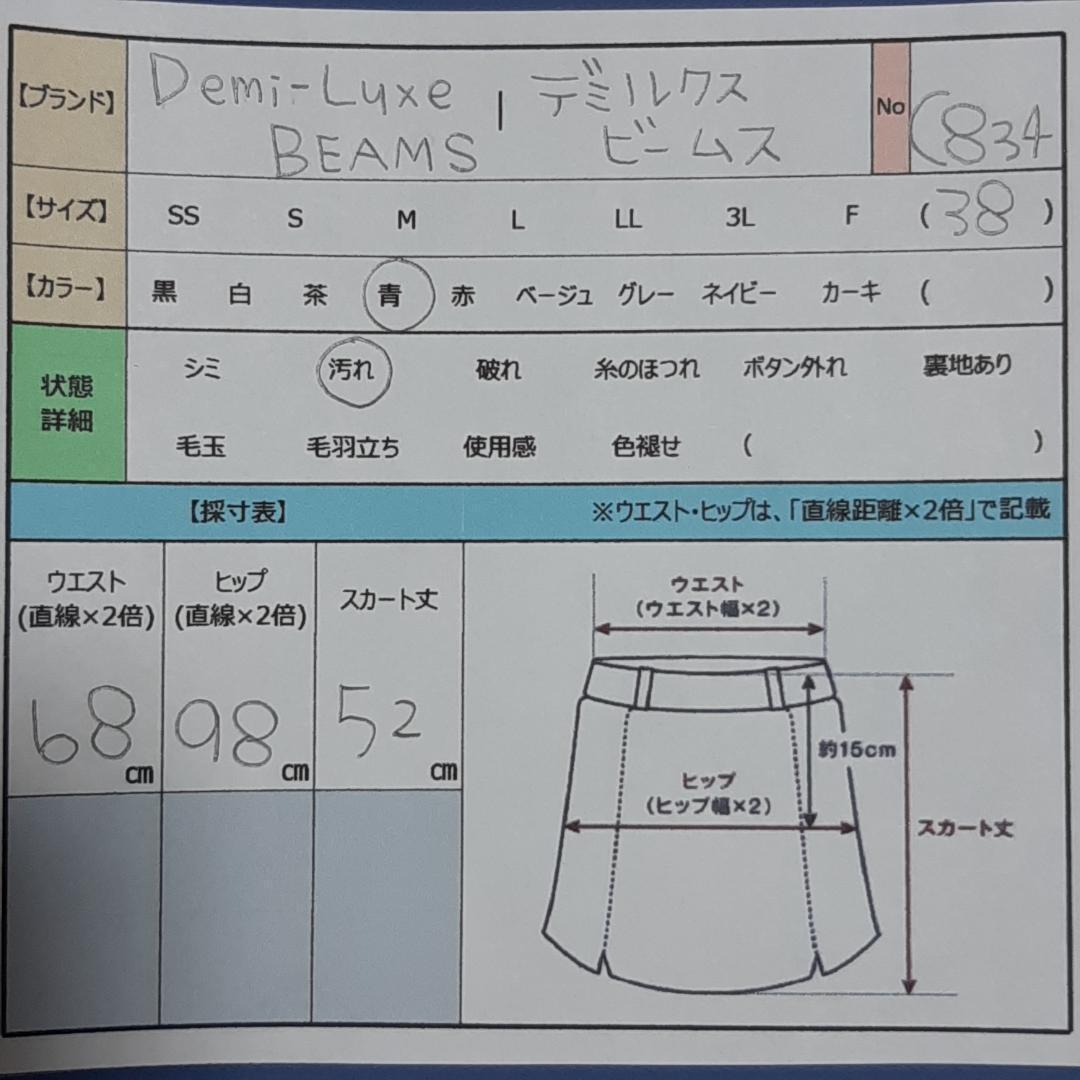 【ブランド】 Demi-Luxe | デミルクス No (834
BEAMS ビームス
【サイズ】 SS S M L LL 3L F ( 38 )
【カラー】 黒 白 茶 青 赤 ベージュ グレー ネイビー カーキ ( )
状態
詳細
シミ 汚れ 破れ 糸のほつれ ボタン外れ 裏地あり
毛玉 毛羽立ち 使用感 色褪せ ( )
【採寸表】 ※ウエスト・ヒップは、「直線距離×2倍」で記載
ウエスト
(直線×2倍)
68 cm
ヒップ
(直線×2倍)
98 cm
スカート丈
52 cm
ウエスト
(ウエスト幅×2)
約15cm
ヒップ
(ヒップ幅×2)
スカート丈